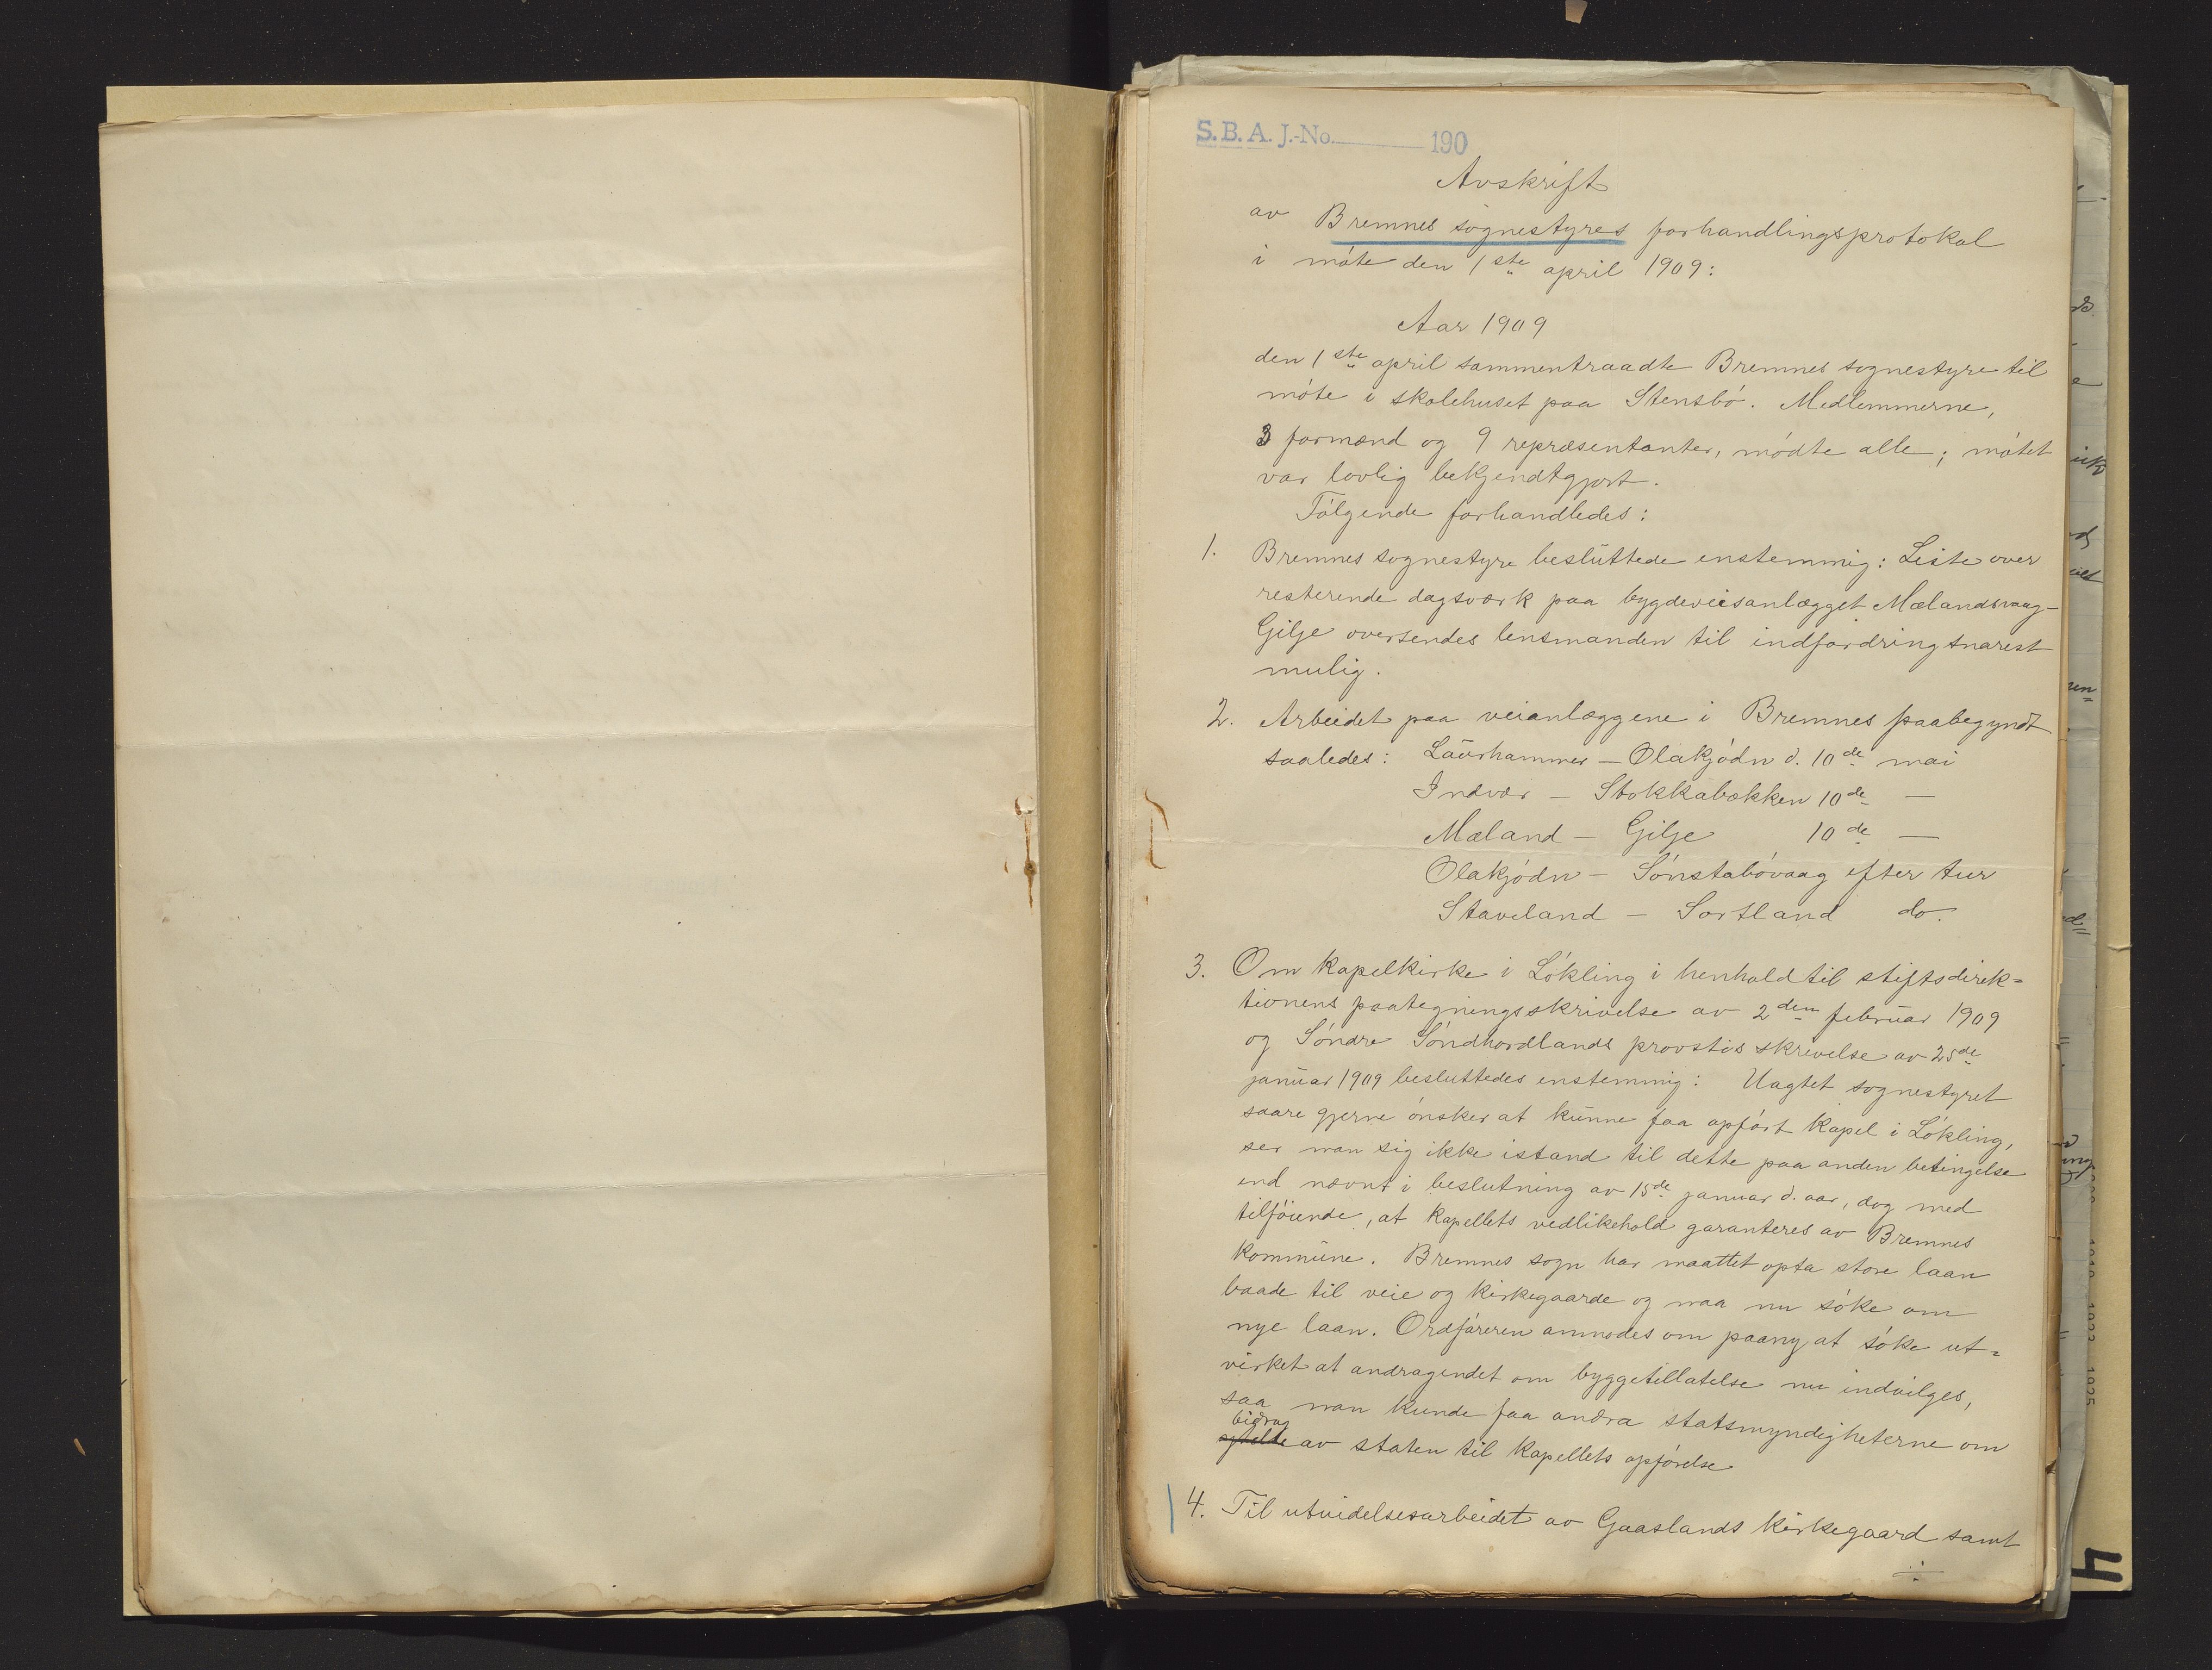 S. B. A. J.-No. 190
Avskrift
av Bremnes sognestyres forhandlingsprotokol
i møte den 1ste april 1909:
Aar 1909
den 1ste april sammentraadte Bremnes sognestyre til
møte i skolehuset paa Stensbø. Medlemmerne,
3 formænd og 9 repræsentanter, mødte alle; møtet
var lovlig bekjendtgjort.
Følgende forhandledes:
1. Bremnes sognestyre besluttede enstemmig: Liste over
resterende dagsværk paa bygdeveisanlægget Mælandsvaag-
Gilje oversendes lensmanden til indfordring snarest
mulig.
2. Arbeidet paa veianlæggene i Bremnes paabegyndt
saaledes: Laurhammer – Olakjødn d. 10de mai
Indvær – Stokkabækken 10de –
Mæland – Gilje 10de –
Olakjødn – Sønstabøvaag efter tur
Staveland – Sortland do.
3. Om kapelkirke i Løkling i henhold til stiftsdirek=
tionens paategningsskrivelse av 2den februar 1909
og Søndre Søndhordlands provstis skrivelse av 25de
januar 1909 besluttedes enstemmig: Uagtet sognestyret
saare gjerne ønsker at kunne faa opført kapel i Løkling,
ser man sig ikke istand til dette paa anden betingelse
end nævnt i beslutning av 15de januar d. aar, dog med
tilføiende, at kapellets vedlikehold garanteres av Bremnes
kommune. Bremnes sogn har maattet opta store laan
baade til veie og kirkegaarde og maa nu søke om
nye laan. Ordføreren anmodes om paany at søke ut=
virket at andragendet om byggetillatelse nu indvilges,
saa man kunde faa andra statsmyndigheterne om
bidrag
av staten til kapellets opførelse
4. Til utvidelsesarbeidet av Gaaslands kirkegaard samt
÷
4